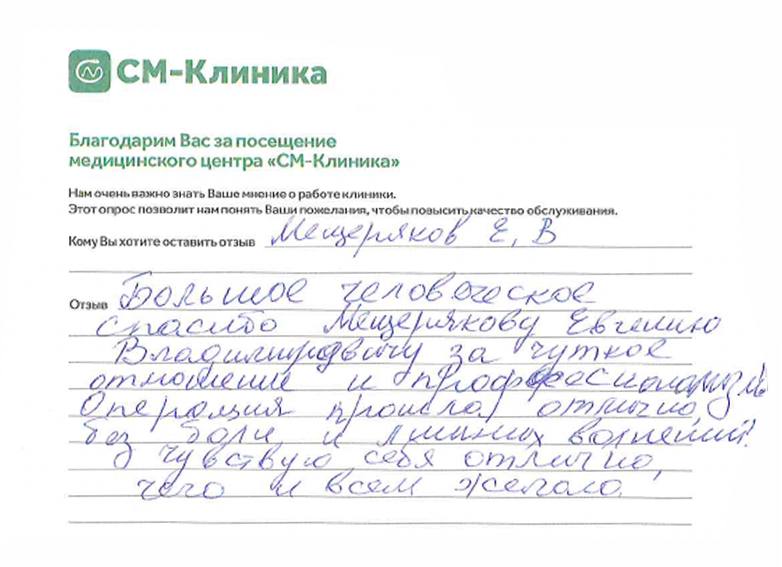 СМ-Клиника
Благодарим Вас за посещение
медицинского центра «СМ-Клиника»
Нам очень важно знать Ваше мнение о работе клиники.
Этот опрос позволит нам понять Ваши пожелания, чтобы повысить качество обслуживания.
Кому Вы хотите оставить отзыв Мещеряков Е, В
Отзыв Большое человеческое
спасибо Мещерякову Евгению
Владимировичу за чуткое
отношение и профессионализм.
Операция прошла отлично,
без боли и лишних волнений.
Чувствую себя отлично,
чего и всем желаю.